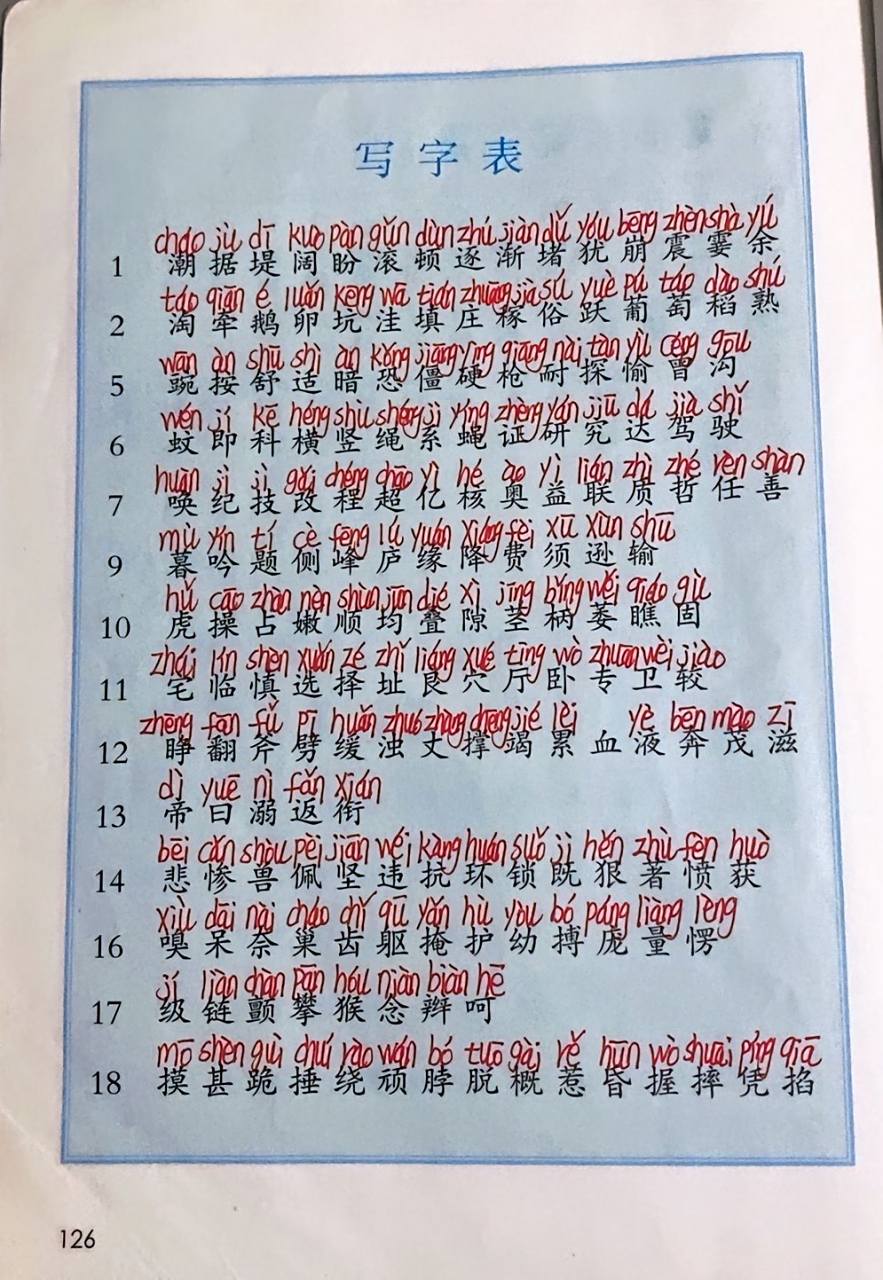 写字表
cháo jù dī kuò pàn gǔn dùn zhú jiàn dǔ yóu bēng zhèn shà yú
1 潮据堤阔盼滚顿逐渐堵犹崩震霎余
táo qiān é luǎn kēng wā tián zhuāng jià sú yuè pú táo dào shú
2 淘牵鹅卵坑洼填庄稼俗跃葡萄稻熟
wān àn shū shì àn kǒng jiāng yìng qiāng nài tàn yú céng gōu
5 豌按舒适暗恐僵硬枪耐探愉曾沟
wén jí kē héng shù shéng jì yíng zhèng yán jiū dá jià shǐ
6 蚊即科横竖绳系蝇证研究达驾驶
huàn jì jì gǎi chéng chāo yì hé ào yì lián zhì zhé rèn shàn
7 唤纪技改程超亿核奥益联质哲任善
mù yín tí cè fēng lú yuán xiáng fèi xū xùn shū
9 暮吟题侧峰庐缘降费须逊输
hǔ cāo zhàn nèn shùn jūn dié xì jīng bǐng wěi qiáo gù
10 虎操占嫩顺均叠隙茎柄萎瞧固
zhái lín shèn xuǎn zé zhǐ liáng xué tīng wò zhuān wèi jiào
11 宅临慎选择址良穴厅卧专卫较
zhēng fān fǔ pī huǎn zhuó zhàng chēng jié lèi yè bēn mào zī
12 睁翻斧劈缓浊丈撑竭累血液奔茂滋
dì yuē nì fǎn xián
13 帝曰溺返衔
bēi cǎn shòu pèi jiān wéi kàng huán suǒ jì hěn zhù fèn huò
14 悲惨兽佩坚违抗环锁既狠著愤获
xiù dāi nài cháo chǐ qū yǎn hù yòu bó páng liàng lèng
16 嗅呆奈巢齿躯掩护幼搏庞量愣
jí liàn chàn pān hóu niàn biàn hē
17 级链颤攀猴念辫呵
mō shèn guì chuí rào wán bó tuō gài rě hūn wò shuāi píng qiā
18 摸甚跪捶绕顽脖脱概惹昏握摔凭掐
126